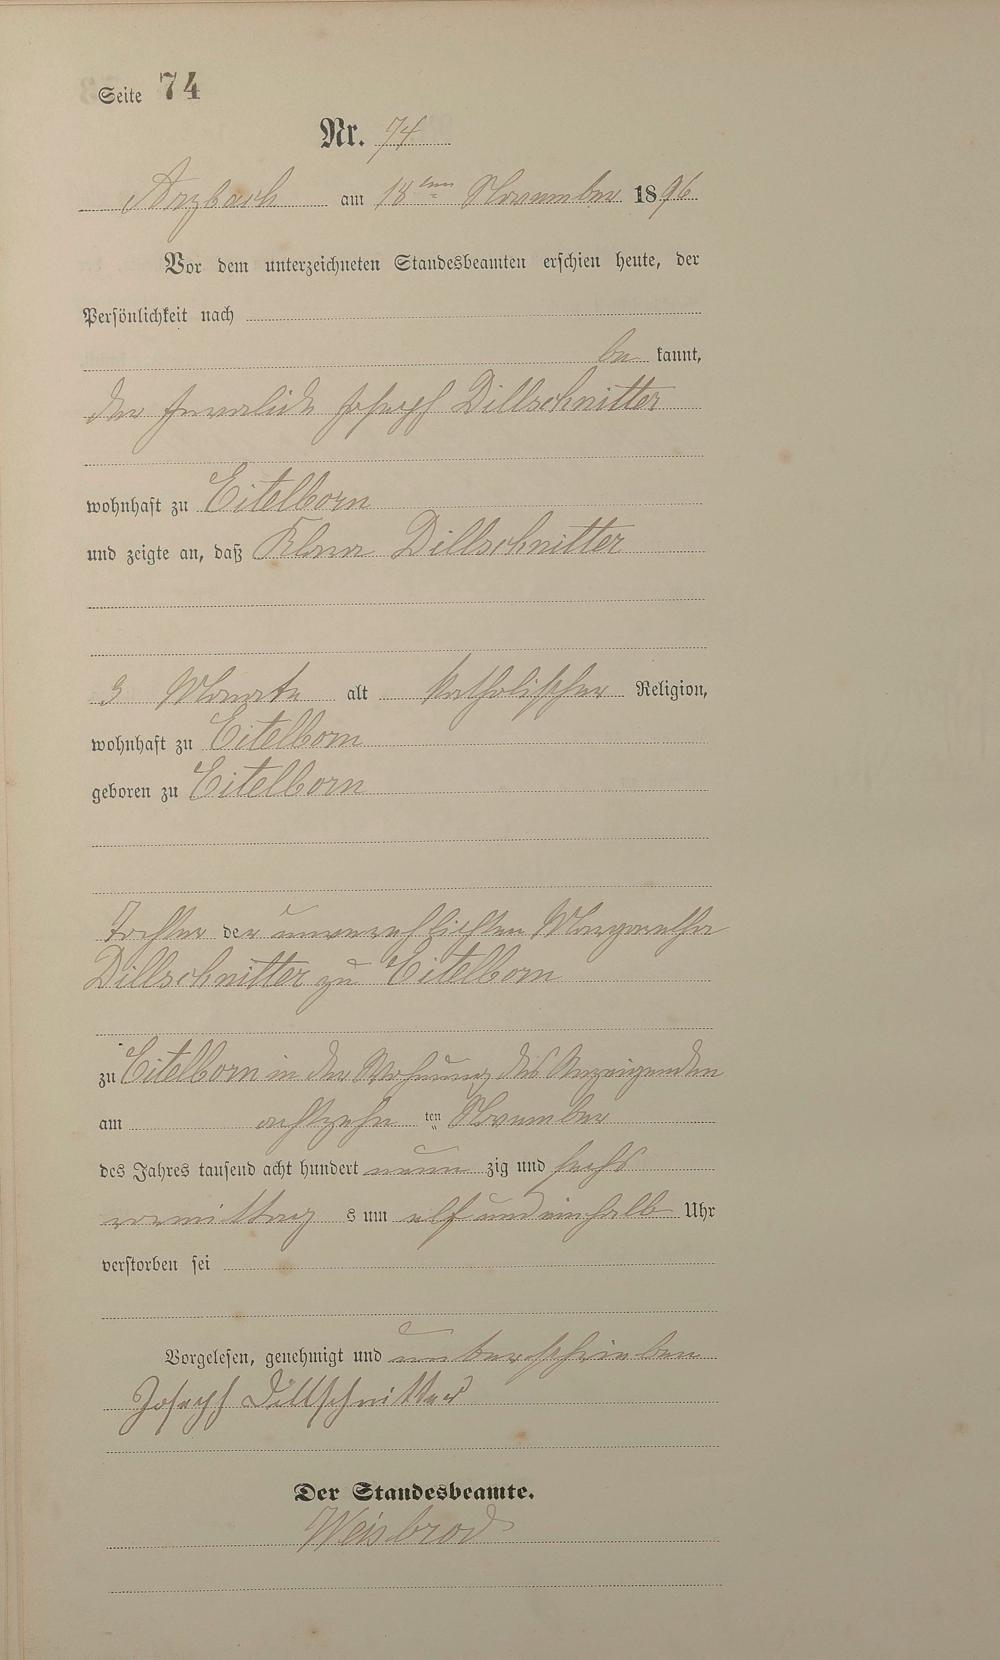 Seite 74
Nr. 74
Arzbach am 18ten November 1896
Vor dem unterzeichneten Standesbeamten erschien heute, der
Persönlichkeit nach
be kannt,
der Invalide Joseph Dillschnitter
wohnhaft zu Eitelborn
und zeigte an, daß Klara Dillschnitter
3 Monate alt katholischer Religion,
wohnhaft zu Eitelborn
geboren zu Eitelborn
Tochter der unverehlichten Margaretha
Dillschnitter zu Eitelborn
zu Eitelborn in der Wohnung des Anzeigenden
am achtzehn ten November
des Jahres tausend acht hundert neun zig und sechs
vormittag s um elf und einhalb Uhr
verstorben sei
Vorgelesen, genehmigt und unterschrieben
Joseph Dillschnitter
Der Standesbeamte.
Weisbrod